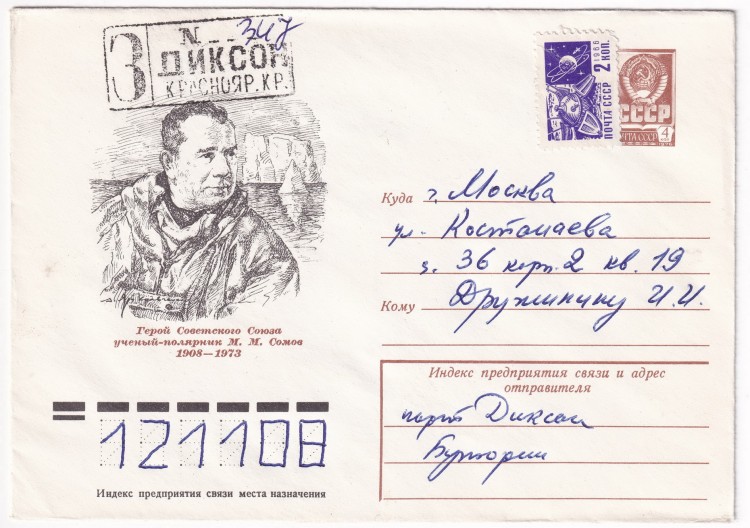 З N 347
ДИКСОН
КРАСНОЯР. КР.
1966
2 КОП.
ПОЧТА СССР
СССР
ПОЧТА СССР 4
Куда г. Москва
ул. Костомаева
д. 36 корп. 2 кв. 19
Кому Дружинину И.И.
Герой Советского Союза
ученый-полярник М. М. Сомов
1908—1973
Индекс предприятия связи и адрес
отправителя
порт Диксон
121108
Индекс предприятия связи места назначения